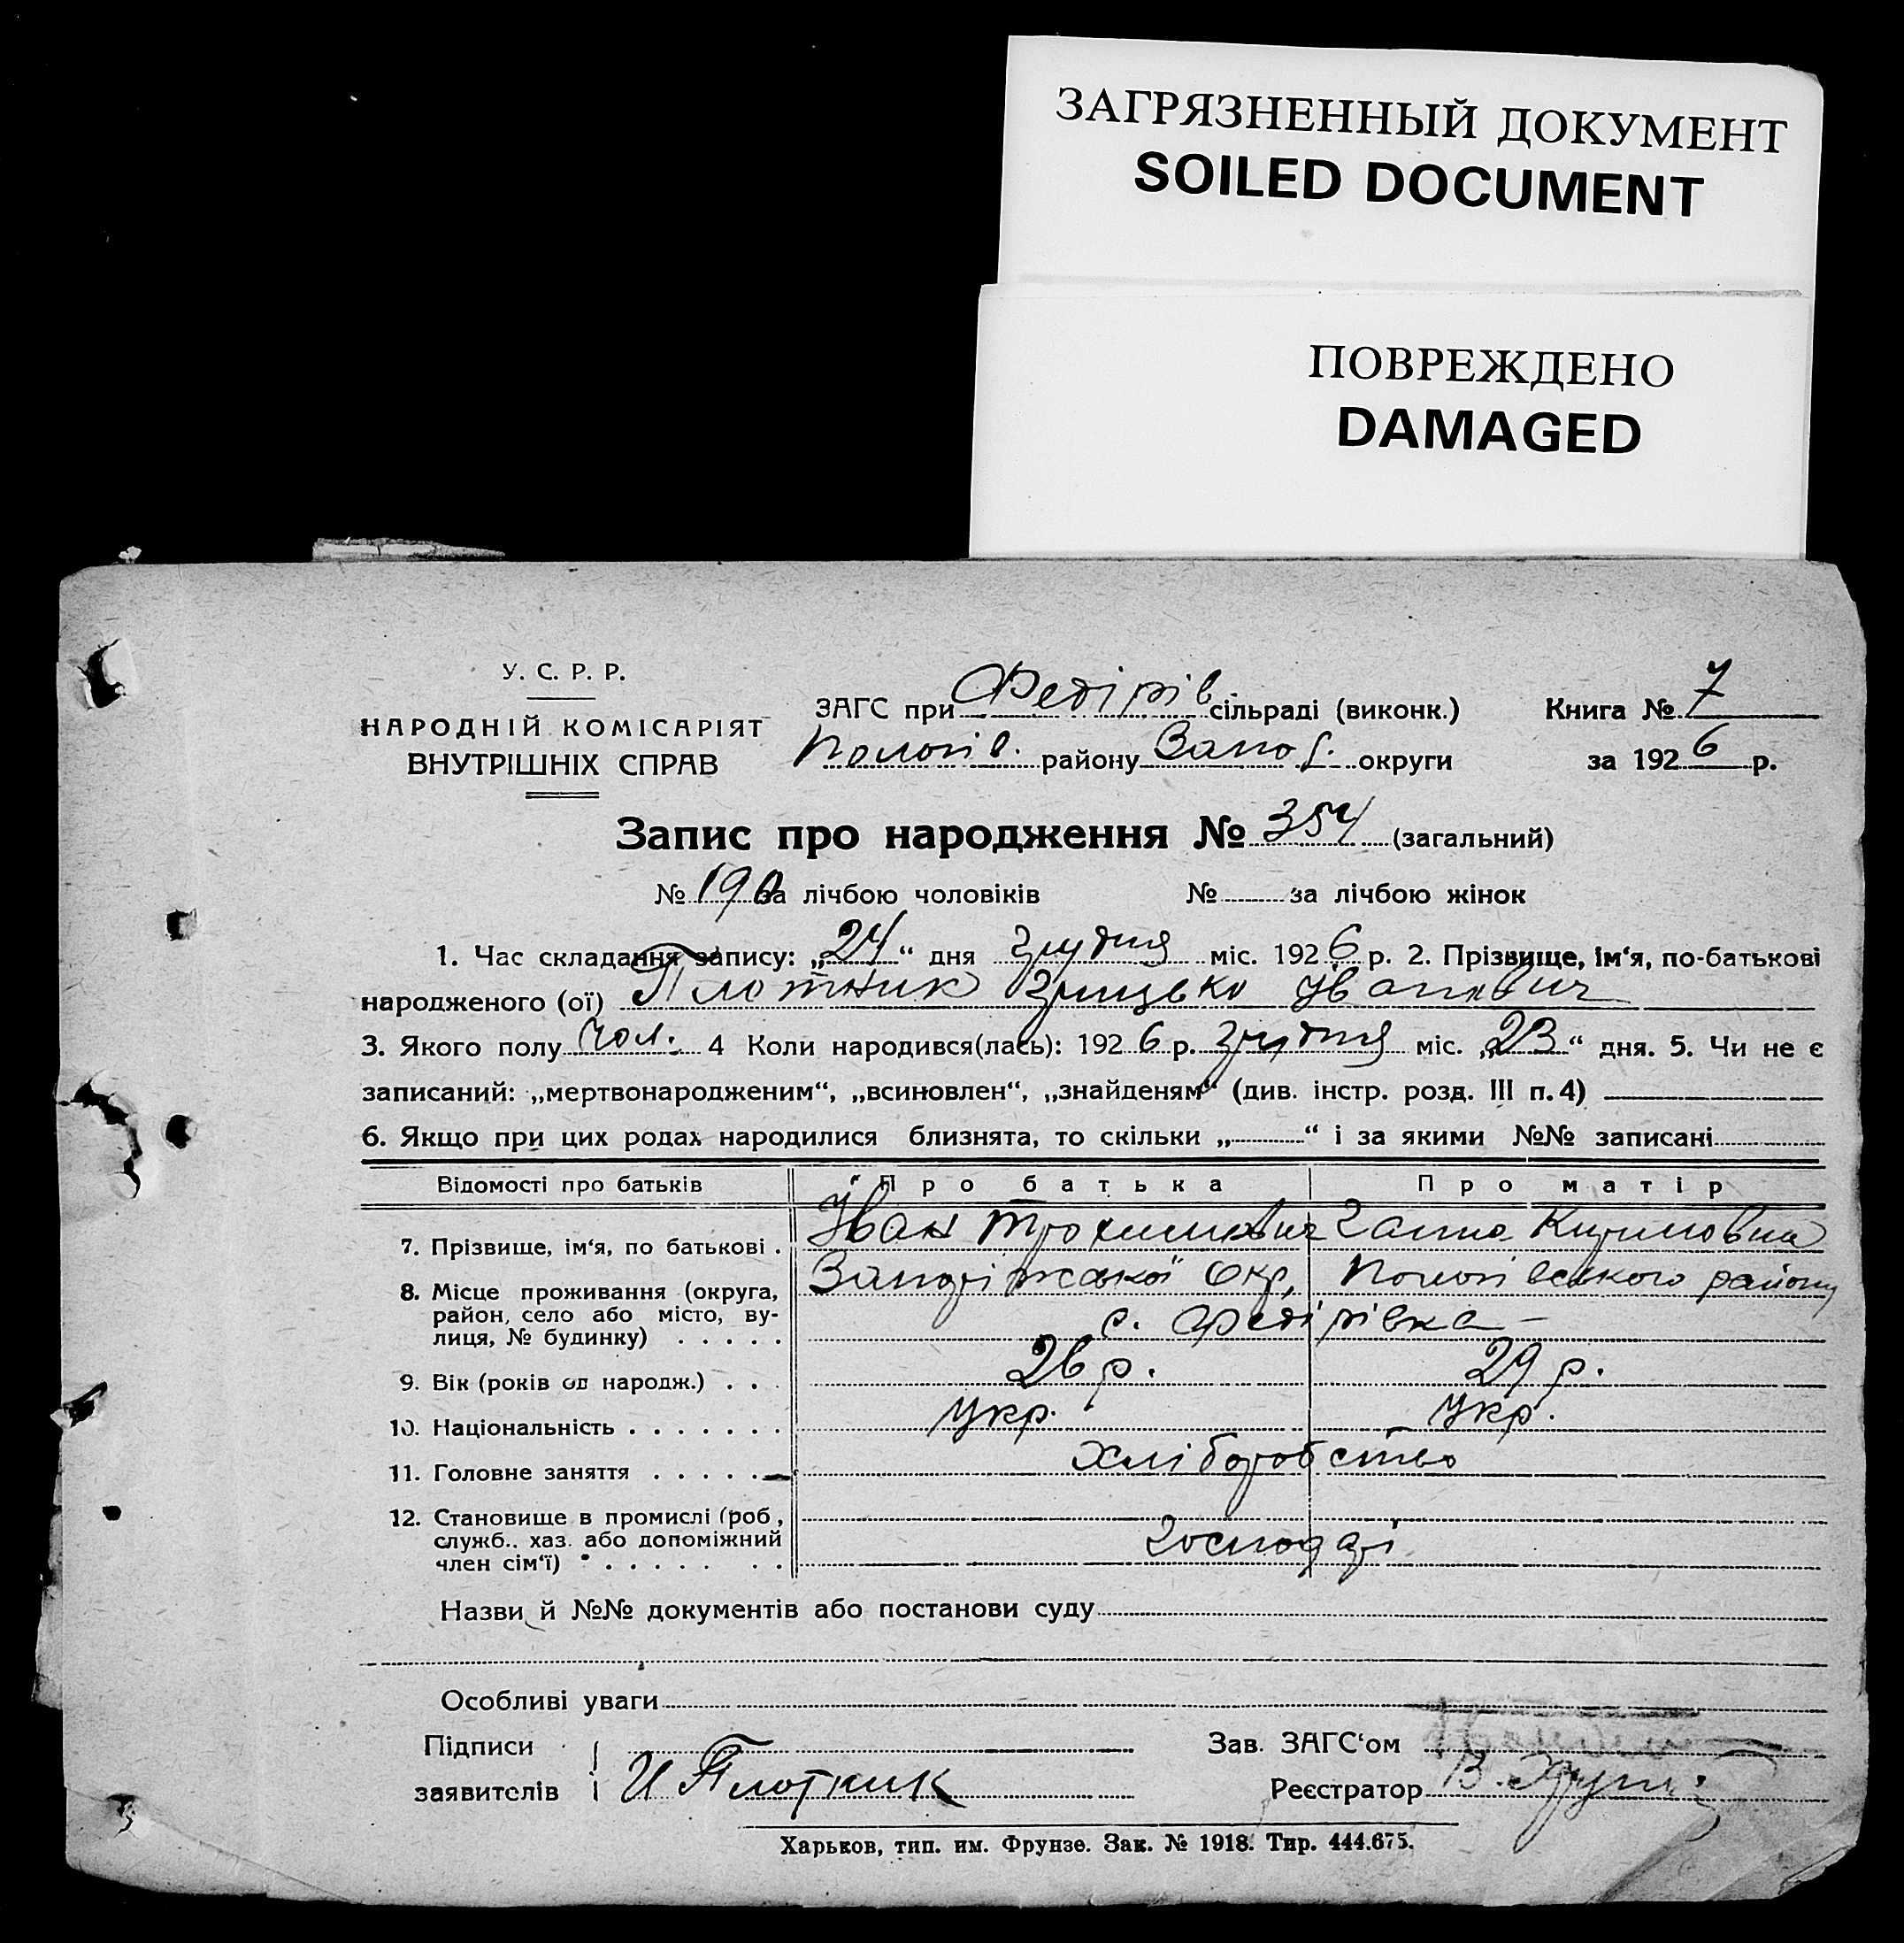 ЗАГРЯЗНЕННЫЙ ДОКУМЕНТ
SOILED DOCUMENT
ПОВРЕЖДЕНО
DAMAGED
У. С. Р. Р.
НАРОДНІЙ КОМІСАРІЯТ
ВНУТРІШНІХ СПРАВ
ЗАГС при Федірів. сільраді (виконк.)
Пологів. району Запор. округи
Книга № 7
за 1926 р.
Запис про народження № 354 (загальний)
№ 190 за лічбою чоловіків № за лічбою жінок
1. Час складання запису: „24“ дня грудня міс. 1926 р. 2. Прізвище, ім‘я, по-батькові
народженого (ої) Плотник Грицько Іванович
3. Якого полу чол. 4 Коли народився(лась): 1926 р. грудня міс. „23“ дня. 5. Чи не є
записаний: „мертвонародженим“, „всиновлен“, „знайденям“ (див. інстр. розд. III п. 4)
6. Якщо при цих родах народилися близнята, то скільки „ “ і за якими №№ записані
Відомості про батьків Про батька Про матір
7. Прізвище, ім‘я, по батькові . Іван Трохимович Ганна Киримовна
8. Місце проживання (округа, район, село або місто, ву-
лиця, № будинку) . . . . . Запоріжської Окр, Пологівського району
с. Федірівка –
9. Вік (років од народж.) . . . 26 р. 29 р.
10. Національність . . . . . . . Укр. Укр.
11. Головне заняття . . . . . Хліборобство
12. Становище в промислі (роб., служб., хаз. або допоміжний
член сім‘ї) . . . . . . . . господарі
Назви й №№ документів або постанови суду
Особливі уваги
Підписи
заявителів И Плотник
Зав. ЗАГС‘ом
Реєстратор В.
Харьков, тип. им. Фрунзе. Зак. № 1918. Тир. 444.675.